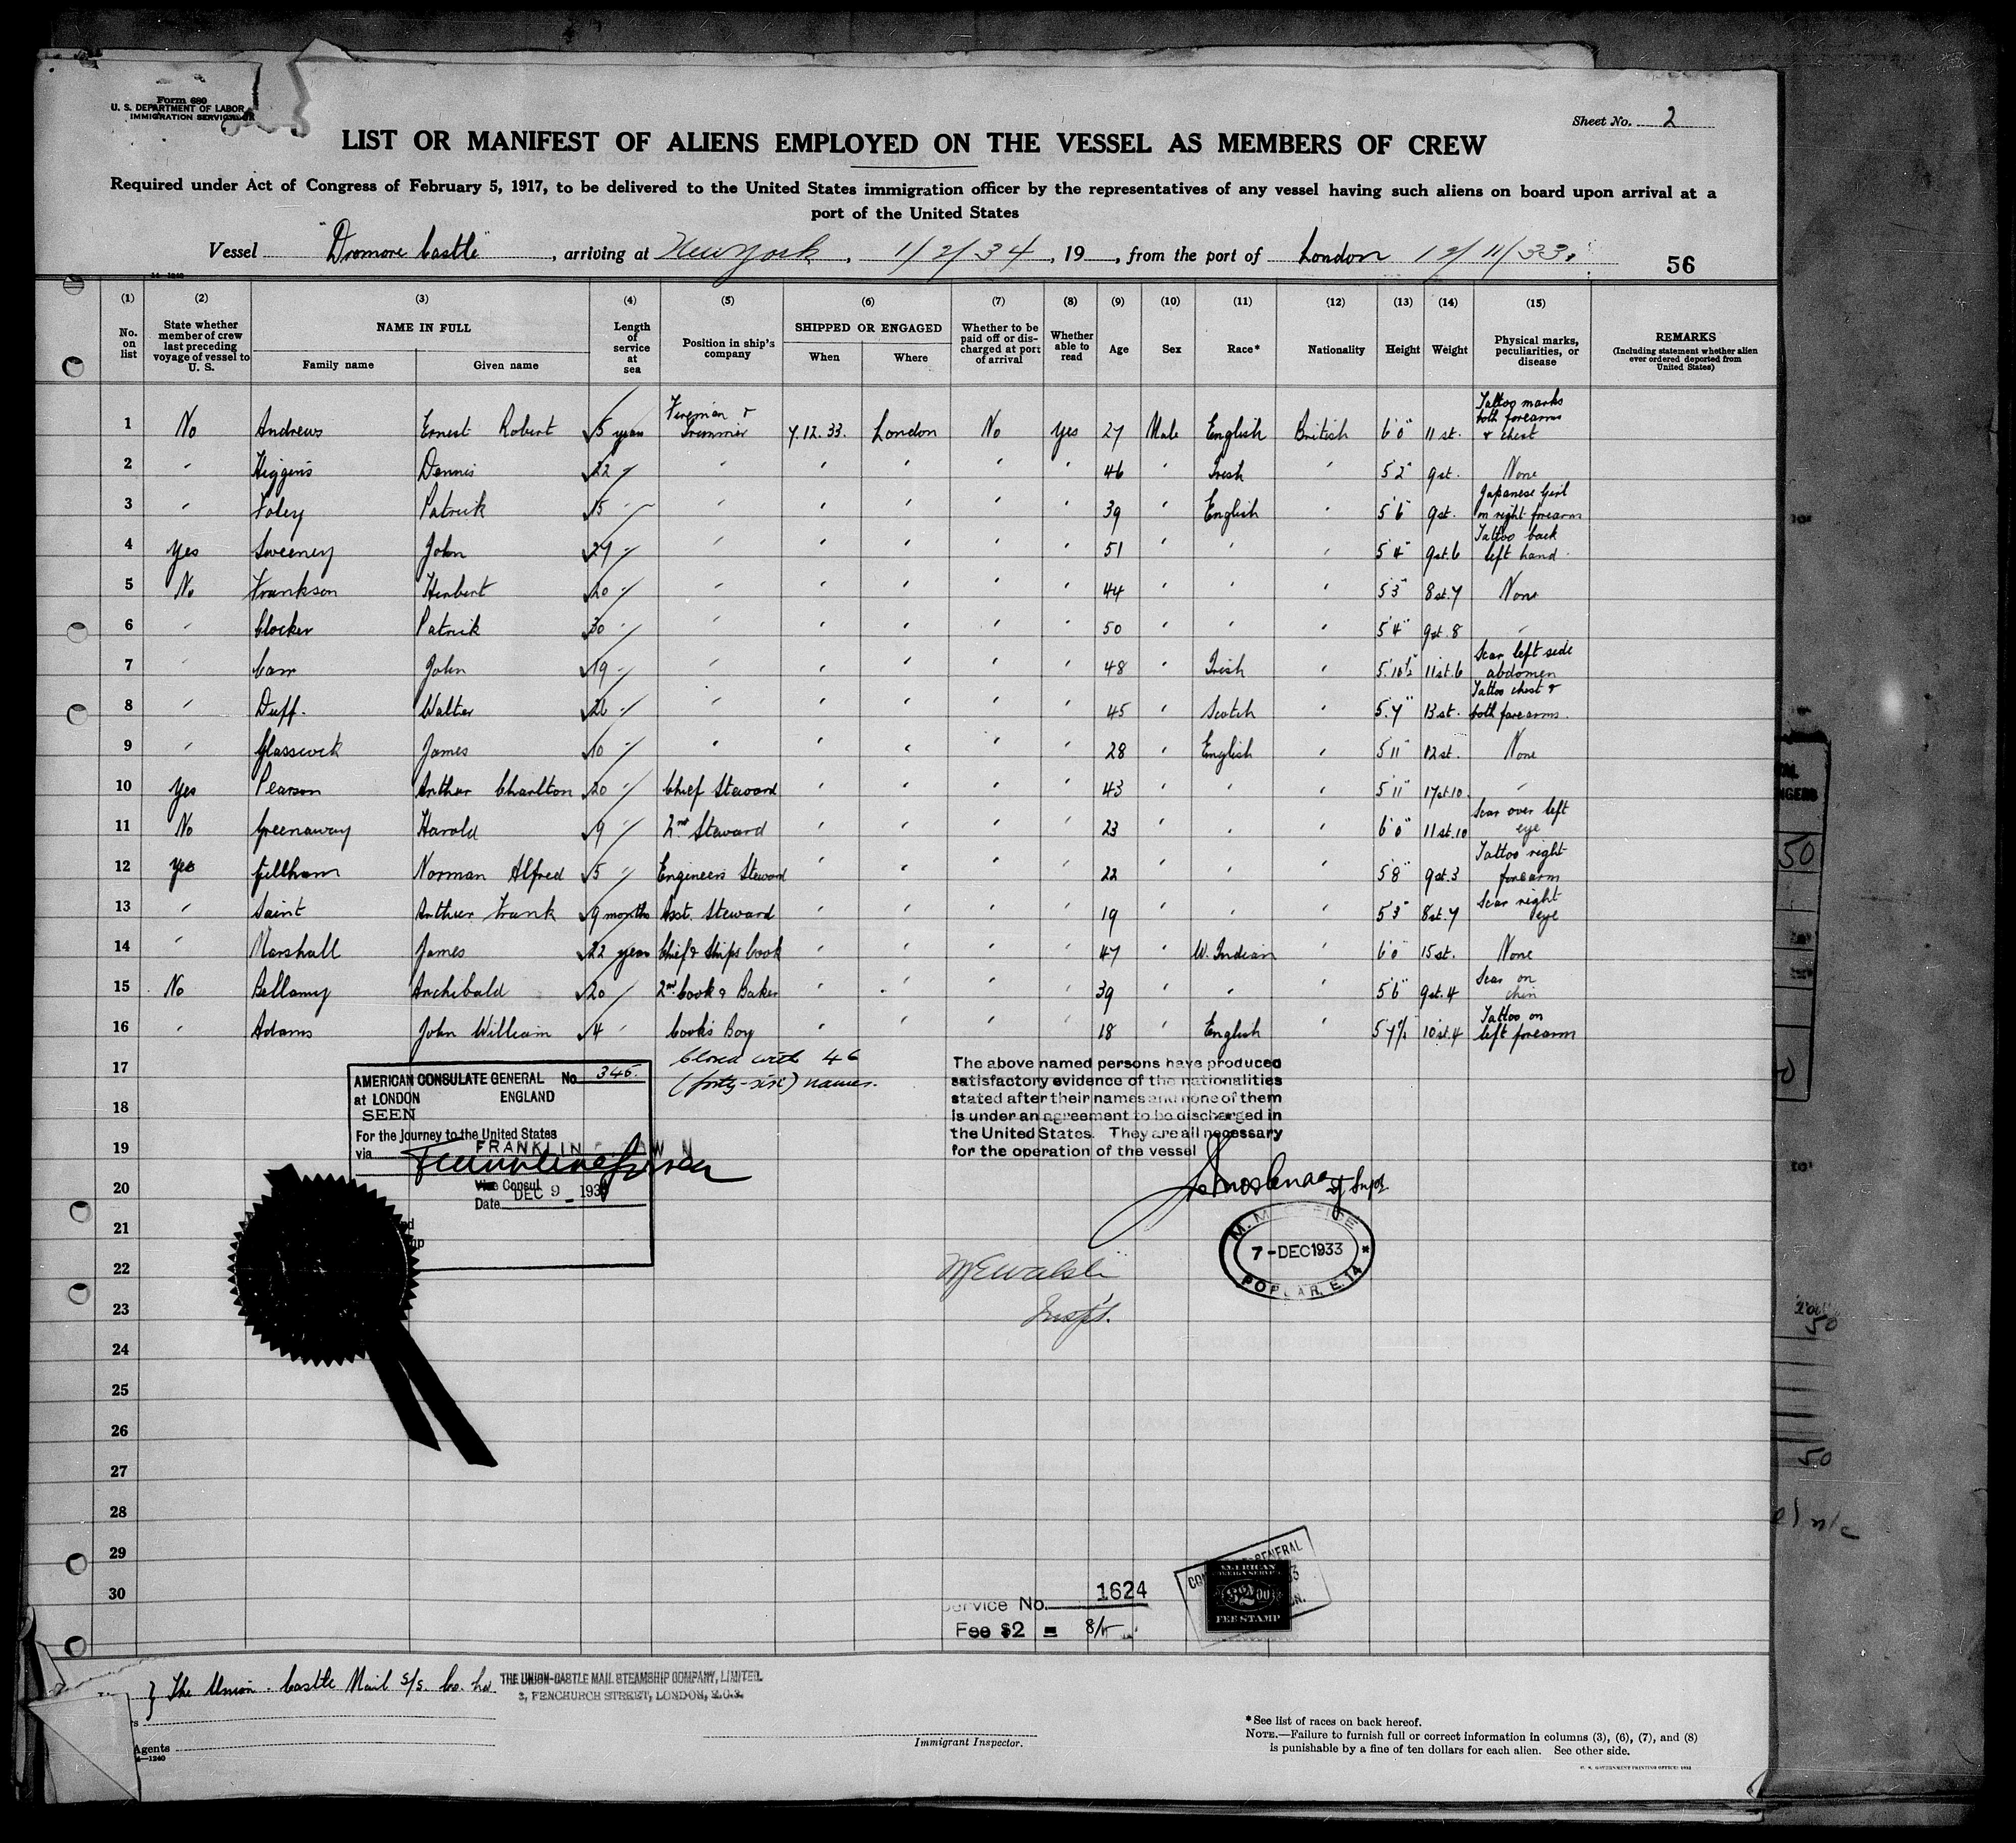 Form 680
U. S. DEPARTMENT OF LABOR
IMMIGRATION SERVICE
Sheet No. 2
LIST OR MANIFEST OF ALIENS EMPLOYED ON THE VESSEL AS MEMBERS OF CREW
Required under Act of Congress of February 5, 1917, to be delivered to the United States immigration officer by the representatives of any vessel having such aliens on board upon arrival at a
port of the United States
Vessel "Dromore Castle", arriving at New York, 1/2/34, 19 , from the port of London 12/11/33.
56
(1) (2) (3) (4) (5) (6) (7) (8) (9) (10) (11) (12) (13) (14) (15)
No. on list | State whether member of crew last preceding voyage of vessel to U. S. | NAME IN FULL Family name Given name | Length of service at sea | Position in ship's company | SHIPPED OR ENGAGED When Where | Whether to be paid off or discharged at port of arrival | Whether able to read | Age | Sex | Race* | Nationality | Height | Weight | Physical marks, peculiarities, or disease | REMARKS (Including statement whether alien ever ordered deported from United States)
1 No Andrews Ernest Robert 5 years Fireman & Trimmer 7.12.33. London No Yes 27 Male English British 6'0" 11 st. Tattoo marks both forearms & chest
2 " Higgins Dennis 22 " " " " " " 46 " Irish " 5'2" 9st. None
3 " Foley Patrick 15 " " " " " " 39 " English 5'6" 9st. Japanese Girl on right forearm
4 Yes Sweeney John 27 " " " " " " 51 " " " 5'4" 9st.6 Tattoo back left hand
5 No Frankson Herbert 20 " " " " " " 44 " " " 5'3" 8st.7 None
6 " Clocker Patrick 30 " " " " " " 50 " " " 5'4" 9st.8 "
7 " Carr John 19 " " " " " " 48 " Irish " 5'10½" 11st.6 Scar left side abdomen
8 " Duff. Walter " " " " " " 45 " Scotch " 5'7" 13st. Tattoo chest & both forearms.
9 " Glasscock James 10 " " " " " " 28 " English " 5'11" 12st. None
10 Yes Pearson Arthur Charlton 20 " Chief Steward " " " " 43 " " " 5'11" 17st.10 "
11 No Greenaway Harold 9 " 2nd Steward " " " " 23 " " " 6'0" 11st.10 Scar over left eye
12 Yes Gillham Norman Alfred 5 " Engineers Steward " " " " 22 " " " 5'8" 9st.3 Tattoo right forearm
13 " Saint Arthur Frank 9 months Asst. Steward " " " " 19 " " " 5'3" 8st.7 Scar right eye
14 " Marshall James 22 years Chief & Ships Cook " " " " 47 " W. Indian " 6'0" 15st. None
15 No Bellamy Archibald 20 " 2nd Cook & Baker " " " " 39 " " " 5'6" 9st.4 Scar on chin
16 " Adams John William 4 " Cook's Boy " " " " 18 " English " 5'7½ 10st.4 Tattoo on left forearm
17
18
19
20
21
22
23
24
25
26
27
28
29
30
Closed with 46
(forty-six) names.
AMERICAN CONSULATE GENERAL No. 345.
at LONDON ENGLAND
SEEN
For the journey to the United States
via
FRANKLIN
Vice Consul
Date DEC 9 - 193
The above named persons have produced
satisfactory evidence of the nationalities
stated after their names and none of them
is under an agreement to be discharged in
the United States. They are all necessary
for the operation of the vessel
Supt.
M. M. OFFICE
7 - DEC 1933 *
POPLAR, E.14
Walsh
Insp't.
Service No. 1624
Fee $2 =
GENERAL
AMERICAN
FOREIGN SERVICE
$2.00
FEE STAMP
The Union-Castle Mail S/S. Co. Ltd.
THE UNION-CASTLE MAIL STEAMSHIP COMPANY, LIMITED.
3, FENCHURCH STREET, LONDON, E.C.3.
Agents
Immigrant Inspector.
*See list of races on back hereof.
NOTE.—Failure to furnish full or correct information in columns (3), (6), (7), and (8)
is punishable by a fine of ten dollars for each alien. See other side.
50
50
50